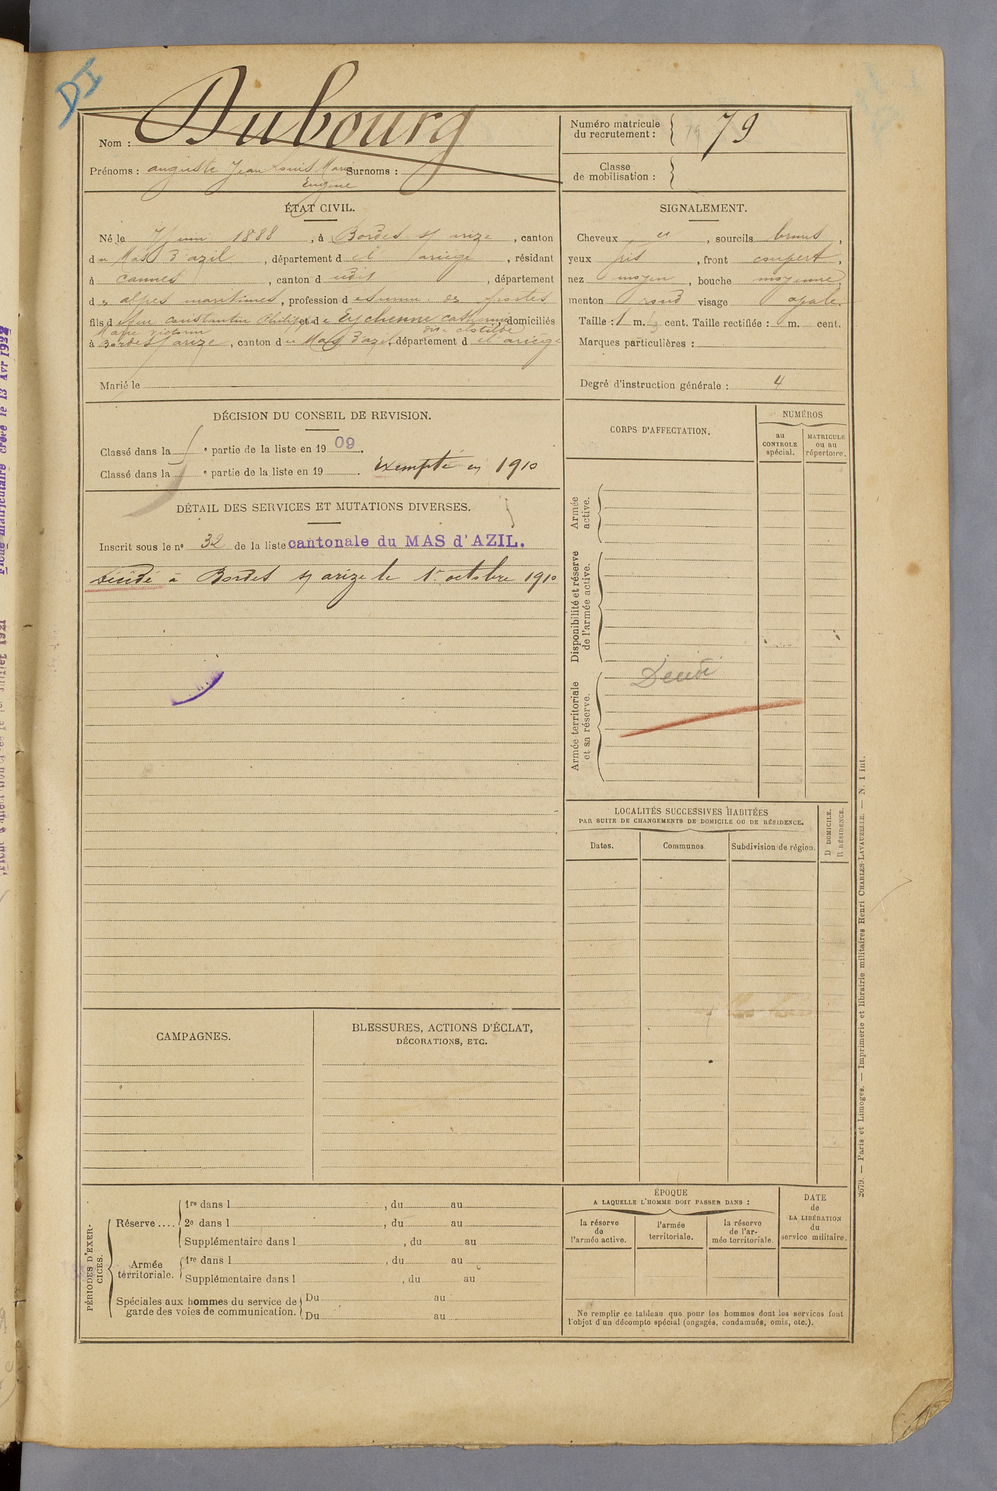 DI
Nom : Dubourg
Prénoms : auguste Jean Louis Marie Surnoms :
Eugene
Numéro matricule du recrutement : 79 79
Classe de mobilisation :
ÉTAT CIVIL.
Né le 7 juin 1888, à Bordes s/ arize, canton
du Mas d'azil, département de l' ariège, résidant
à cannes, canton d udit, département
des alpes maritimes, profession de des postes
fils de feu constantin Philippe et de Eychenne catherine domiciliés
Marie victorine dite clotilde
à Bordes s/ arize, canton du Mas d'azil, département de l'ariège
Marié le
SIGNALEMENT.
Cheveux et, sourcils bruns,
yeux gris, front couvert,
nez moyen, bouche moyenne,
menton rond visage ovale.
Taille : 1 m. cent. Taille rectifiée : m. cent.
Marques particulières :
Degré d'instruction générale : 4
DÉCISION DU CONSEIL DE REVISION.
Classé dans la e partie de la liste en 1909.
Classé dans la e partie de la liste en 19 . Exempté en 1910
DÉTAIL DES SERVICES ET MUTATIONS DIVERSES.
Inscrit sous le n° 32 de la liste cantonale du MAS d'AZIL.
Décédé à Bordes s/ arize le 1er octobre 1910
CORPS D'AFFECTATION.
NUMÉROS
au CONTROLE spécial.
MATRICULE ou au répertoire.
Armée active.
Disponibilité et réserve de l'armée active.
Armée territoriale et sa réserve.
Décédé
LOCALITÉS SUCCESSIVES HABITÉES
PAR SUITE DE CHANGEMENTS DE DOMICILE OU DE RÉSIDENCE.
Dates.
Communes.
Subdivision de région.
D DOMICILE.
R RÉSIDENCE.
CAMPAGNES.
BLESSURES, ACTIONS D'ÉCLAT,
DÉCORATIONS, ETC.
PÉRIODES D'EXERCICES.
Réserve .... 1re dans l , du au
2e dans l , du au
Supplémentaire dans l , du au
Armée territoriale. 1re dans l , du au
Supplémentaire dans l , du au
Spéciales aux hommes du service de garde des voies de communication. Du au
Du au
ÉPOQUE
A LAQUELLE L'HOMME DOIT PASSER DANS :
la réserve de l'armée active.
l'armée territoriale.
la réserve de l'armée territoriale.
DATE de LA LIBÉRATION du service militaire.
Ne remplir ce tableau que pour les hommes dont les services font
l'objet d'un décompte spécial (engagés, condamnés, omis, etc.).
2679. — Paris et Limoges. — Imprimerie et librairie militaires Henri CHARLES-LAVAUZELLE. — N. 1 int.